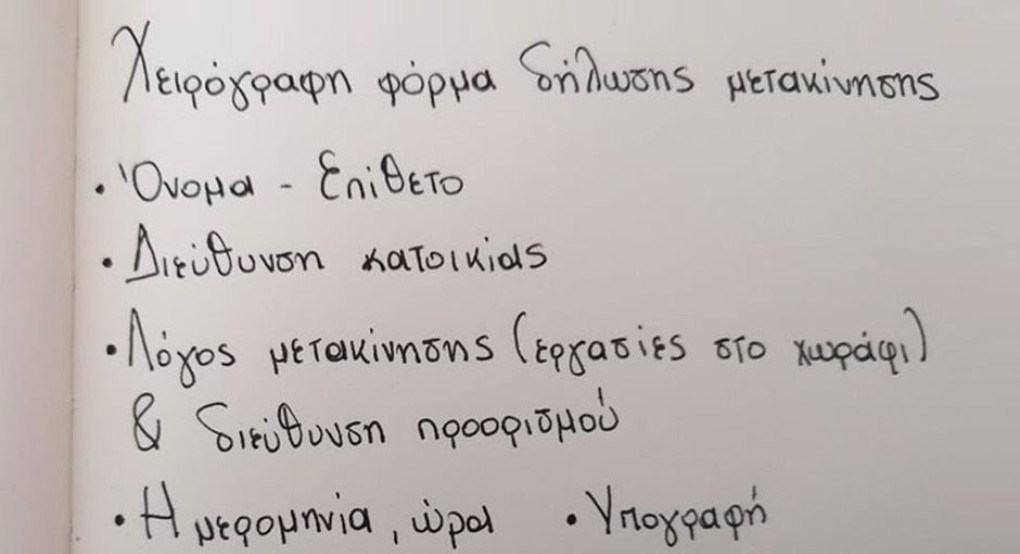 Χειρόγραφη φόρμα δήλωσης μετακίνησης
• Όνομα - Επίθετο
• Διεύθυνση κατοικίας
• Λόγος μετακίνησης (εργασίες στο χωράφι)
& διεύθυνση προορισμού
• Ημερομηνία, ώρα • Υπογραφή